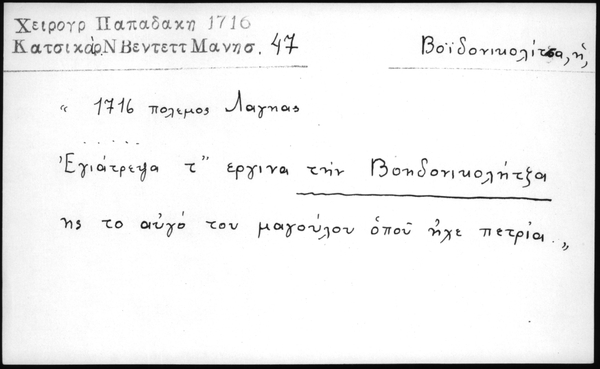 Χειρογρ Παπαδακη 1716
Κατσικάρ. Ν Βενтεττ Μανησ. 47
Βοϊδονικολίτσα, ἡ
„ 1716 πολεμος Λαγκας
. . . . .
Ἐγιάτρεψα τ" εργινα τὴν Βοηδονικολήτζα
ης το αὐγό του μαγούλου ὁποῦ ἠχε πετρία. „